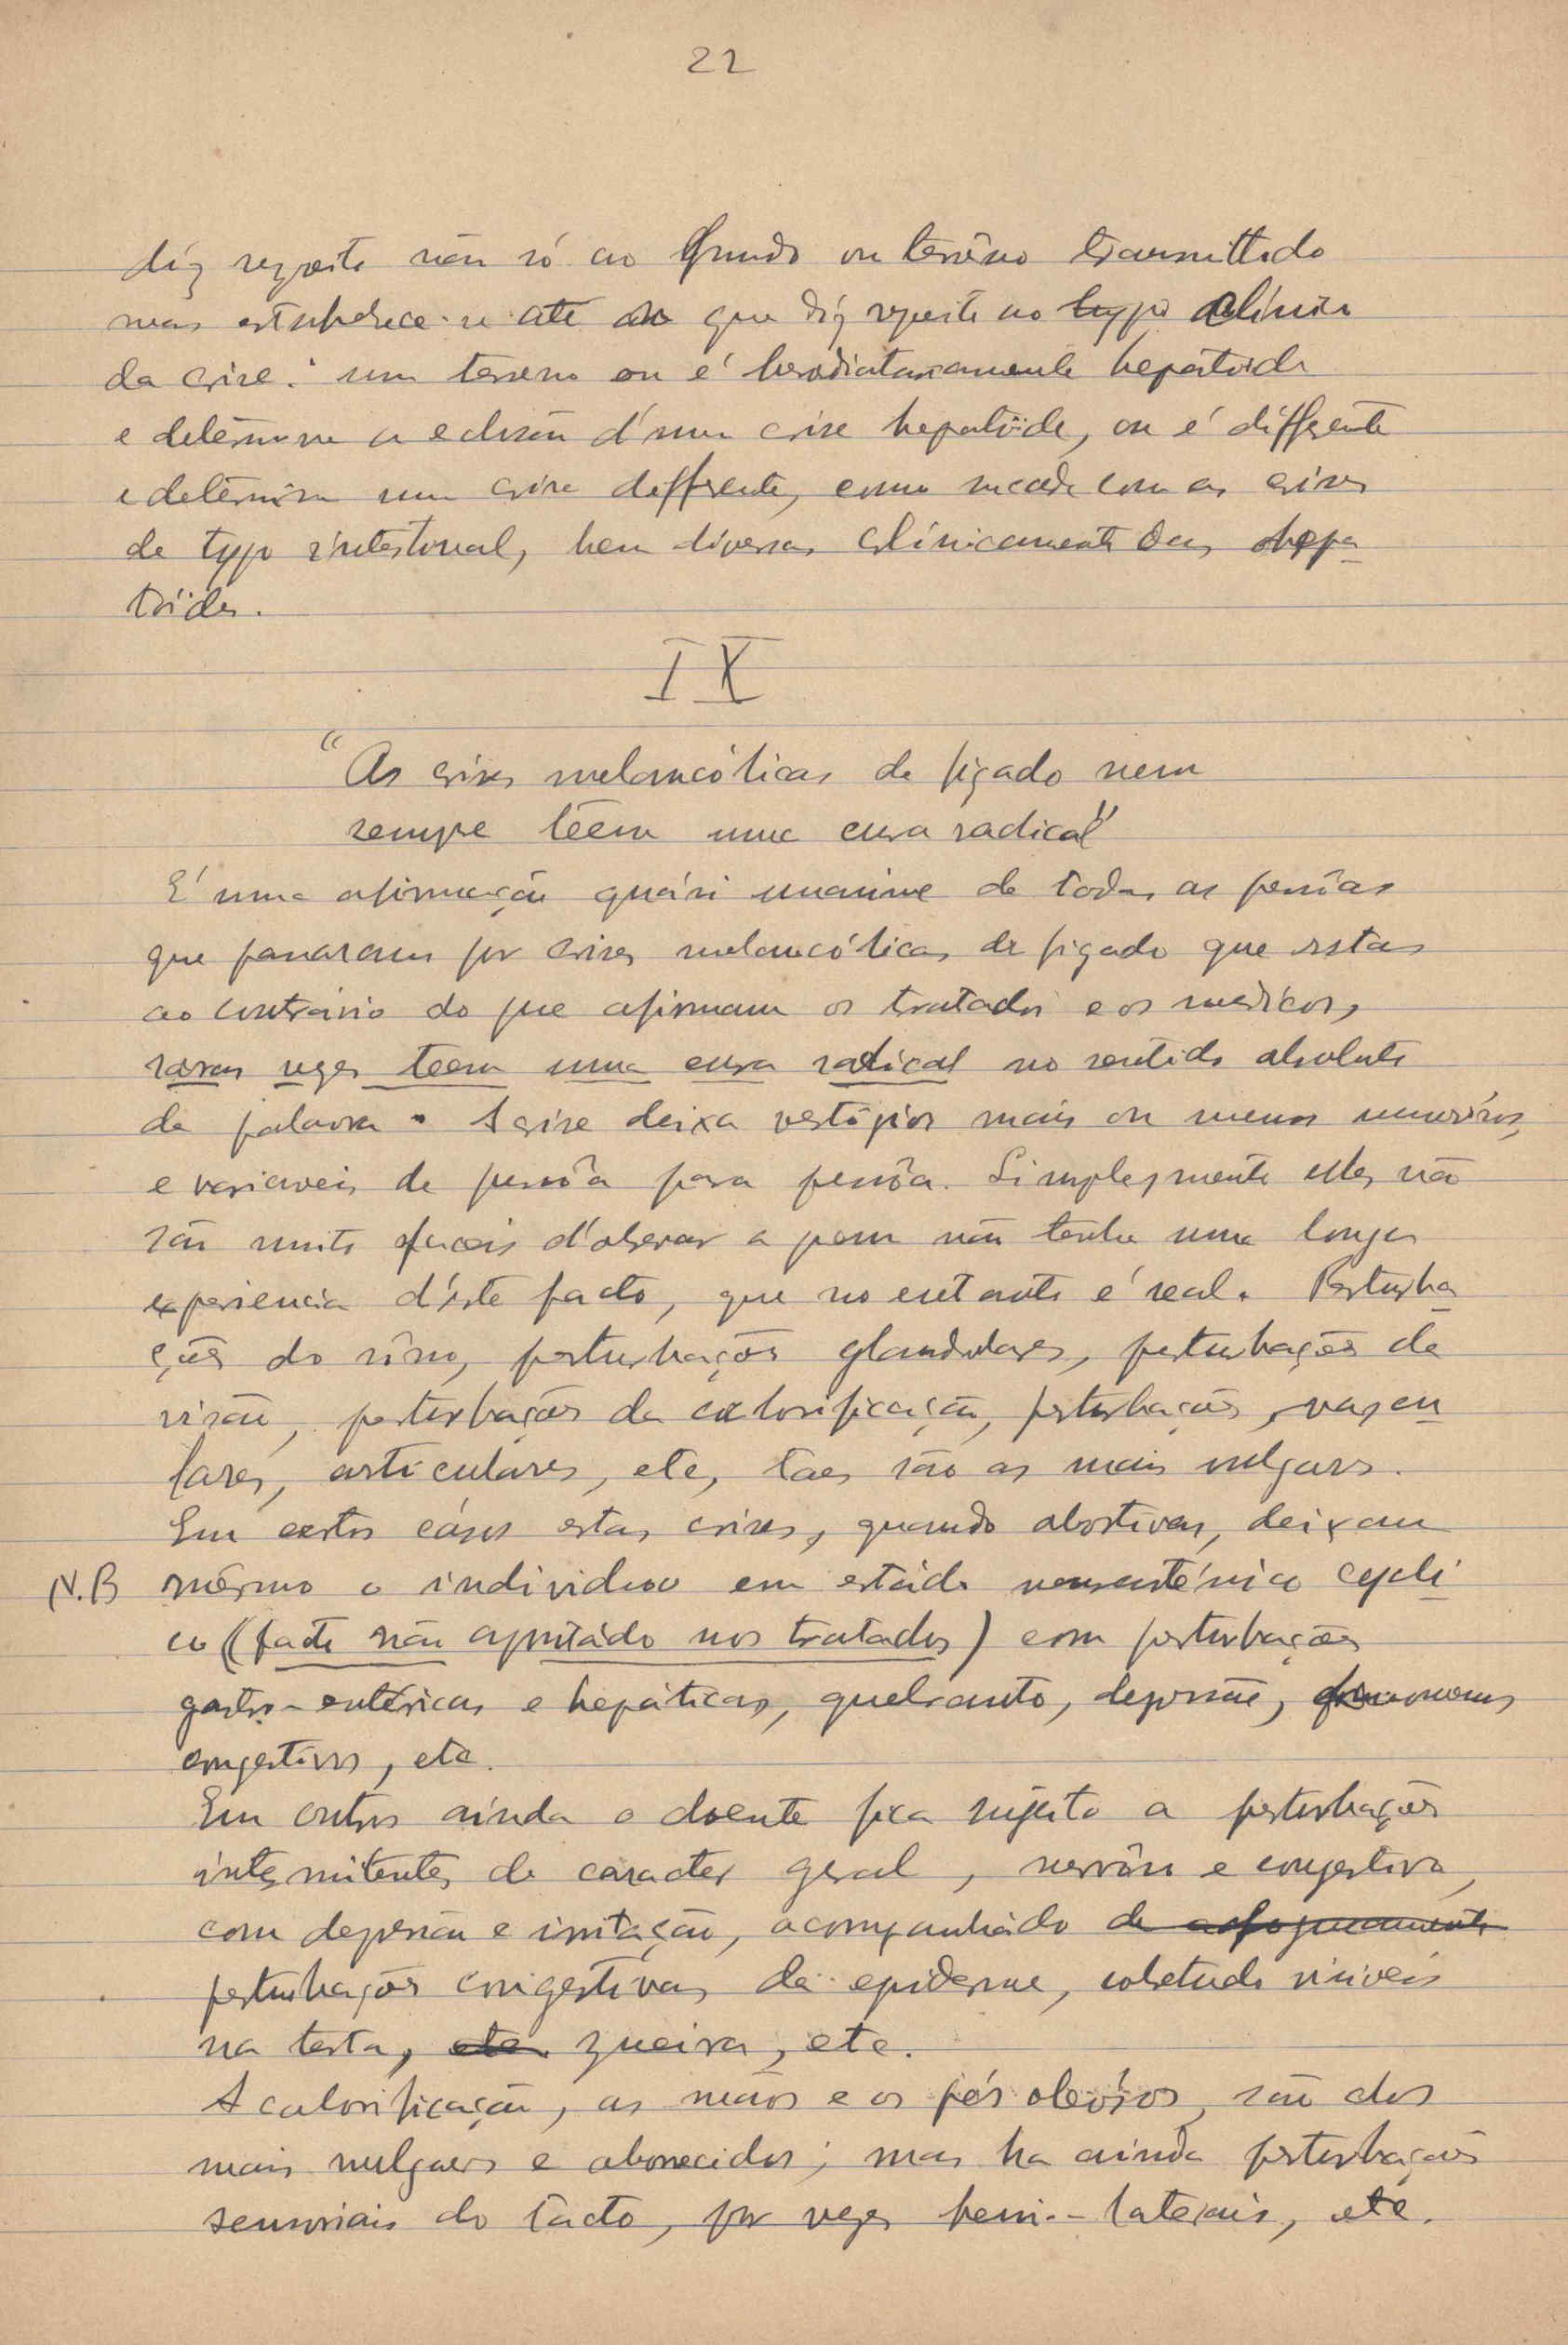 22
diz respeito não só ao fundo ou terrêno transmittido
mas estabelece-se até no que diz respeito ao typo clínico
da crise: um terreno ou é herediatariamente hepatoide
e determina a eclosão d'uma crise hepatoïde, ou é différente
e determina uma crise defferente, como sucede com as crises
de typo intestinal, bem diversas clínicamente das hepa
toïdes.
IX
"As crises melancólicas de figado nem
sempre têem uma cura radical"
É uma afirmação quási unanime de todas as pessôas
que passaram por crises melancólicas de figado que estas
ao contrário do que afirmam os tratados e os medicos,
raras vezes têem uma cura radical no sentido absoluto
da palavra. A crise deixa vestigios mais ou menos numerósos,
e variaveis de pessôa para pessôa. Simplesmente estes não
são muito faceis d'observar a quem não tenha uma longa
experiencia d'éste facto, que no entanto é real. Perturba
ções do sôno, perturbações glandulares, perturbações da
visão, perturbações da calorificação, perturbações, vascu
lares, articulares, etc, taes são as mais vulgares.
Em certos cásos estas crises, quando abortivas, deixam
N.B mêsmo o individuo em estádo neurasténico cycli
co (facto não apontádo nos tratados) com perturbações
gastro-entéricas e hepáticas, quebranto, depressão, fenomenos
congestivos, etc.
Em outros ainda o doente fica sujeito a perturbações
intermitentes de caracter geral, nervôso e congestivo,
com depressão e irritação, acompanhádo de afogueamento
perturbações congestivas da epiderme, sobretudo visiveis
na testa, etc. zueira, etc.
A calorificação, as mãos e os pés oleósos, são dos
mais vulgares e aborrecidos; mas ha ainda perturbações
sensoriais do tacto, por vezes hemi-laterais, etc.